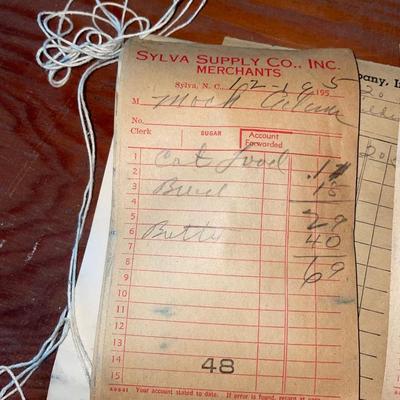 SYLVA SUPPLY CO., INC.
MERCHANTS
Sylva, N. C., 12-19 195 5
M
No.
Clerk SUGAR Account Forwarded
1 Cat food .11
2
3 Bread 18
4
5 29
6 Butter 40
7
8 69
9
10
11
12
13
14
15
48
Your account stated to date. If error is found, return at once.
pany, In
20